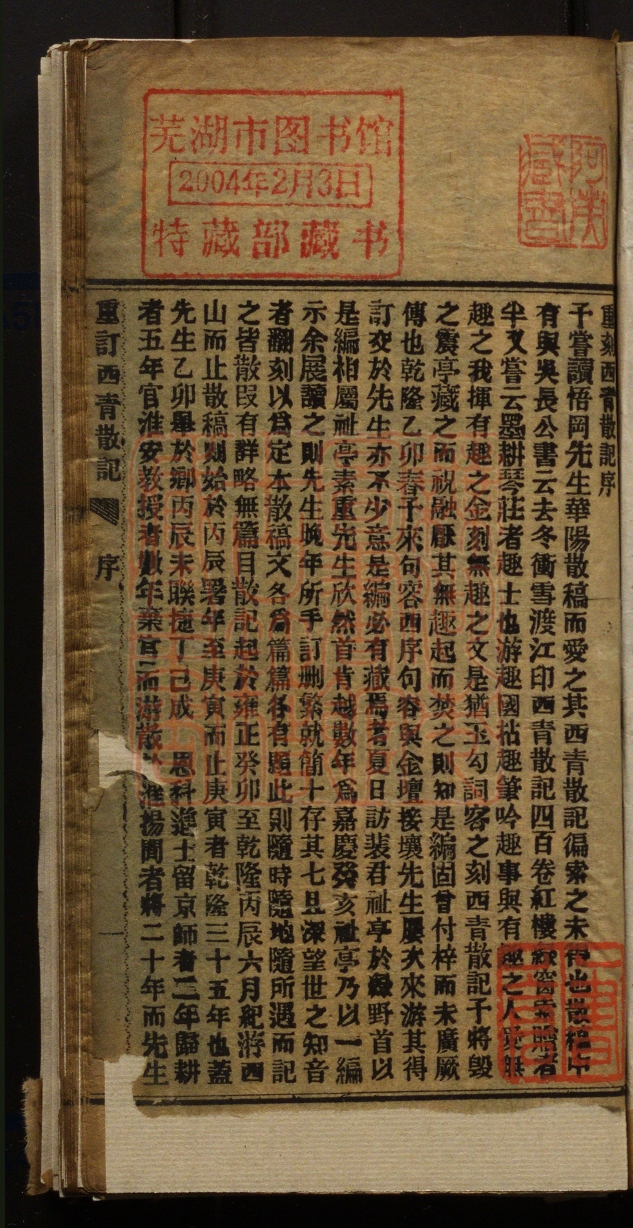 芜湖市图书馆
2004年2月3日
特藏部藏书
重刻西青散記序
予嘗讀悟岡先生華陽散稿而愛之其西青散記徧索之未得也散稿中
有與吳長公書云去冬衝雪渡江印西青散記四百卷紅樓綠窗索贈者
半又嘗云墨耕琴莊者趣士也游趣國拈趣筆吟趣事與有趣之人愛無
趣之我揮有趣之金刻無趣之文是猶玉勾詞客之刻西青散記予將毀
之震亭藏之而祝融厭其無趣起而焚之則知是編固曾付梓而未廣厥
傳也乾隆乙卯春予來句容西序句容與金壇接壤先生屢次來游其得
訂交於先生亦不少意是編必有藏焉者夏日訪裴君祉亭於綠野首以
是編相屬祉亭素重先生欣然首肯越數年爲嘉慶癸亥祉亭乃以一編
示余展讀之則先生晚年所手訂刪繁就簡十存其七且深望世之知音
者翻刻以爲定本散稿文各爲篇篇各有題此則隨時隨地隨所遇而記
之皆散段有詳略無篇目散記起於雍正癸卯至乾隆丙辰六月紀游西
山而止散稿則始於丙辰署年至庚寅而止庚寅者乾隆三十五年也蓋
先生乙卯舉於鄉丙辰未聯捷丁巳成 恩科進士留京師者二年歸耕
者五年官淮安教授者數年棄官而游散於淮揚間者將二十年而先生
重訂西青散記 序